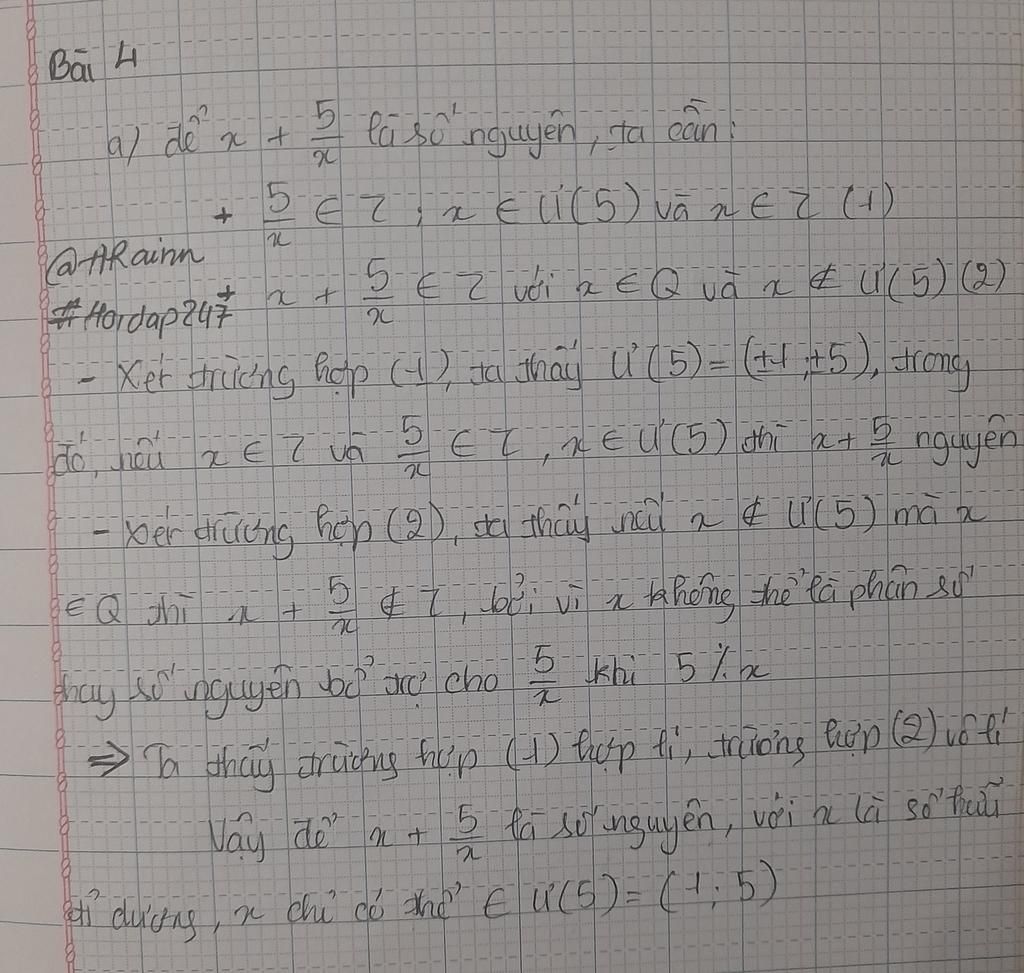 Bài 4
a) để x + 5/x là số nguyên, ta cần:
+ 5/x ∈ Z, x ∈ Ư(5) và x ∈ Z (1)
@ARainn
#Hoidap247
+ x + 5/x ∈ Z với x ∈ Q và x ∉ Ư(5) (2)
- Xét trường hợp (1), ta thấy Ư(5) = (±1; ±5), trong
đó, nếu x ∈ Z và 5/x ∈ Z, x ∈ Ư(5) thì x + 5/x nguyên
- Xét trường hợp (2), ta thấy nếu x ∉ Ư(5) mà x
∈ Q thì x + 5/x ∉ Z, bởi vì x không thể là phân số
hay số nguyên bổ trợ cho 5/x khi 5 ⋮̸ x
⇒ Ta thấy trường hợp (1) hợp lí, trường hợp (2) vô lí
Vậy để x + 5/x là số nguyên, với x là số hữu
tỉ dương, x chỉ có thể ∈ Ư(5) = (1; 5)